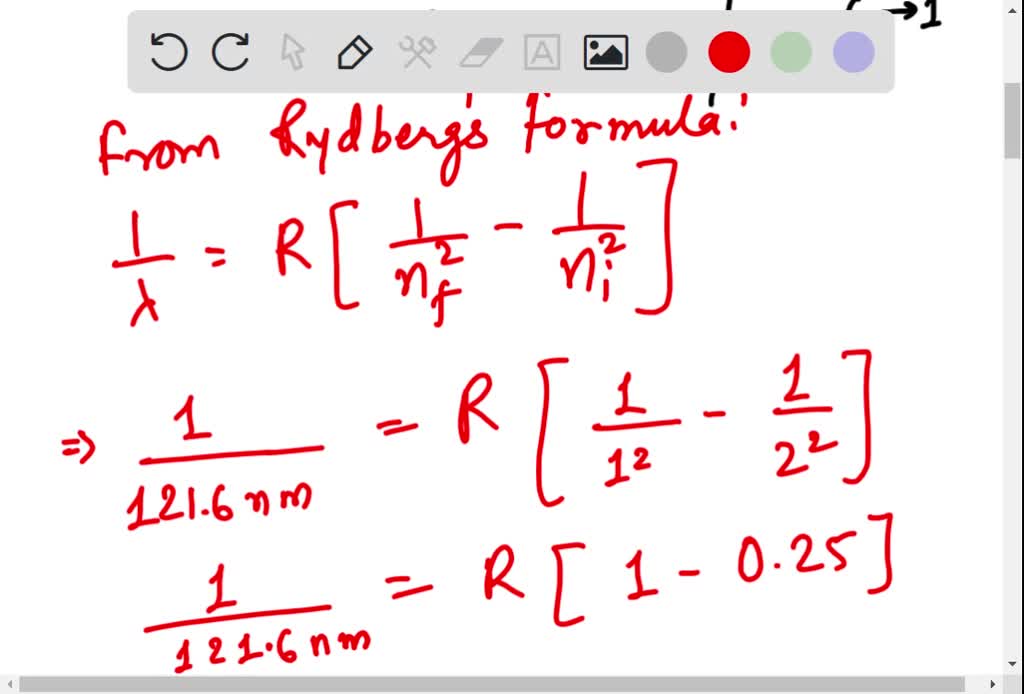 →1
A
from Rydberg's formula:
1/λ = R [ 1/n_f^2 - 1/n_i^2 ]
=> 1/121.6 nm = R [ 1/1^2 - 1/2^2 ]
1/121.6 nm = R [ 1 - 0.25 ]